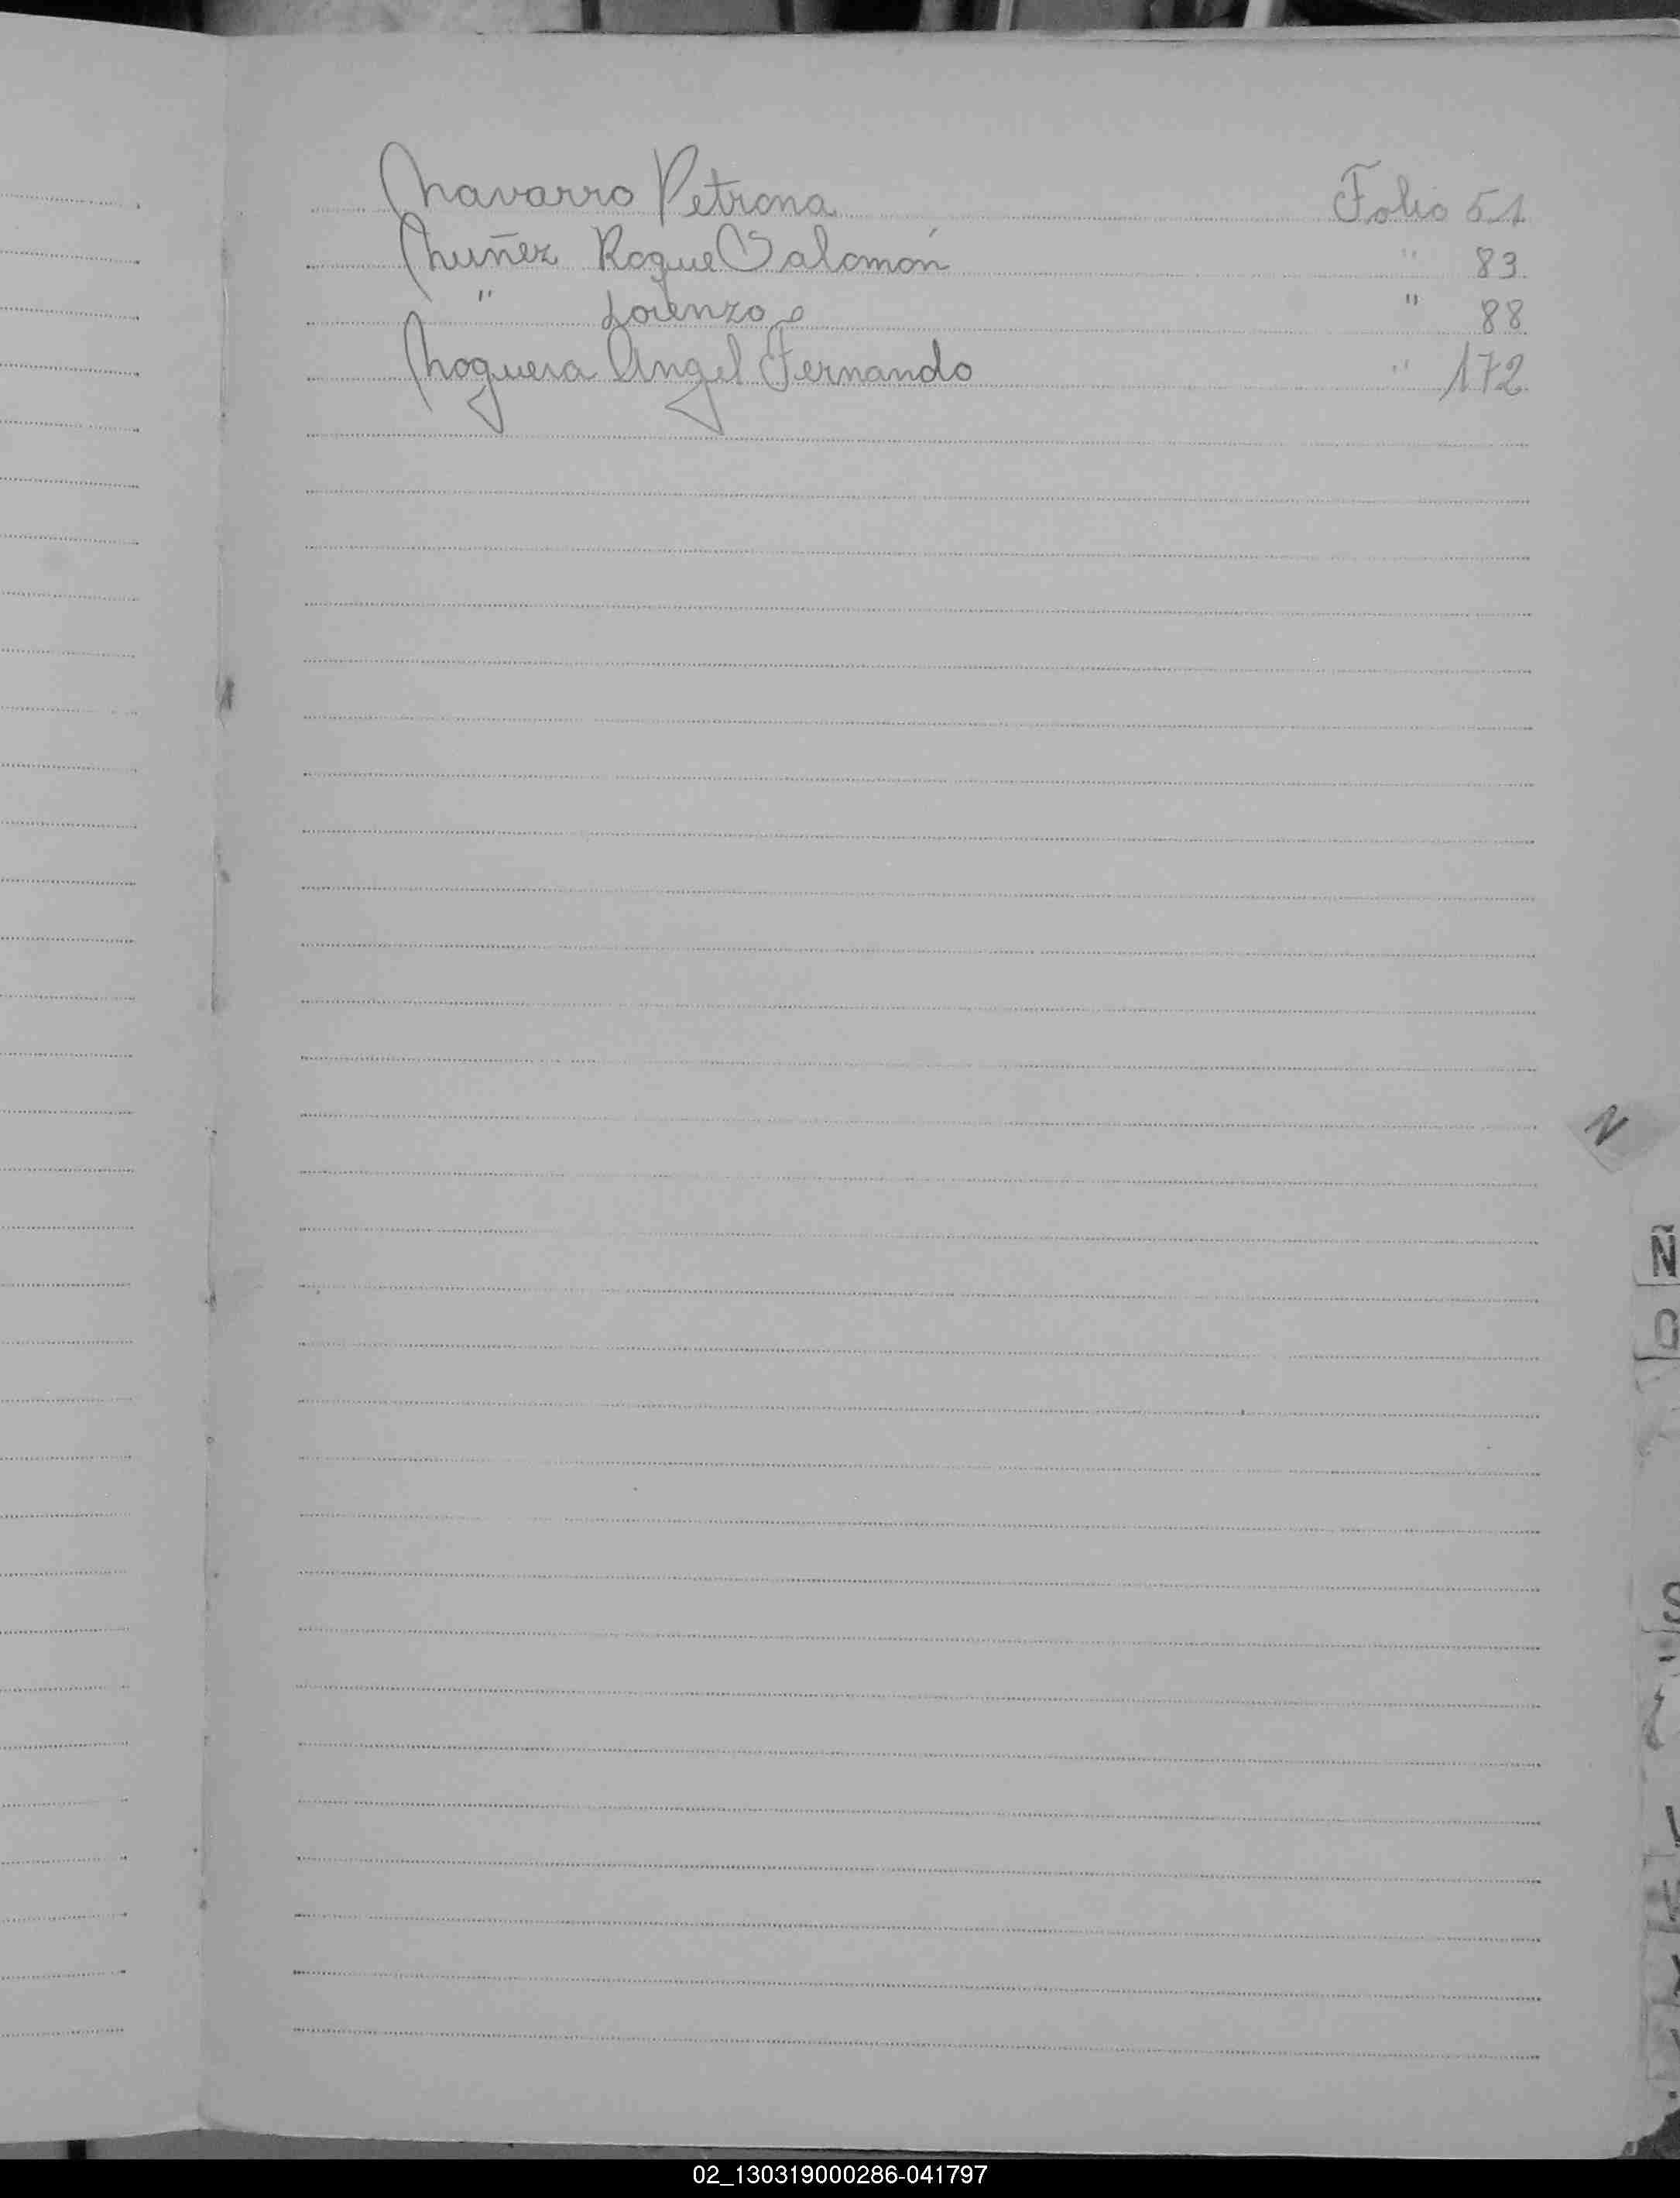 Navarro Petrona Folio 51
Nuñez Roque Salomón " 83
" Lorenzo " 88
Noguera Angel Fernando " 172
N
Ñ
O
S
02_130319000286-041797